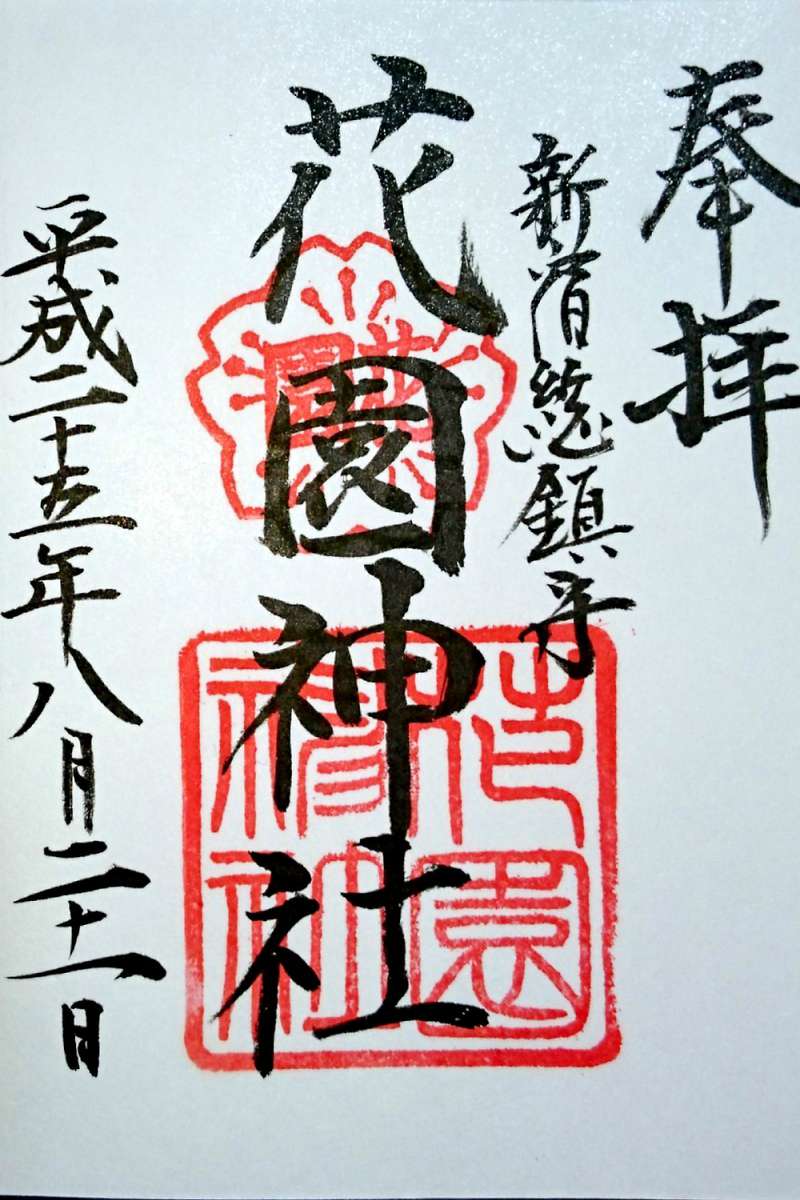 奉拝
新宿総鎮守
花園神社
平成二十五年八月二十一日
花園神社